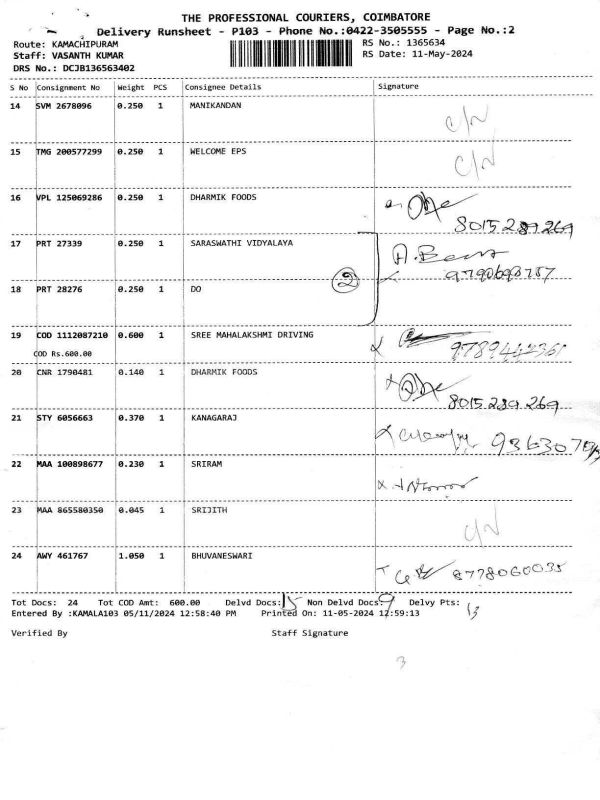 THE PROFESSIONAL COURIERS, COIMBATORE
Delivery Runsheet - P103 - Phone No.:0422-3505555 - Page No.:2
Route: KAMACHIPURAM RS No.: 1365634
Staff: VASANTH KUMAR RS Date: 11-May-2024
DRS No.: DCJB136563402
S No Consignment No Weight PCS Consignee Details Signature
14 SVM 2678096 0.250 1 MANIKANDAN C/N
15 TMG 200577299 0.250 1 WELCOME EPS C/N
16 VPL 125069286 0.250 1 DHARMIK FOODS
8015289269
17 PRT 27339 0.250 1 SARASWATHI VIDYALAYA
2
18 PRT 28276 0.250 1 DO
19 COD 1112087210 0.600 1 SREE MAHALAKSHMI DRIVING
COD Rs.600.00
20 CNR 1790481 0.140 1 DHARMIK FOODS
8015289269
21 STY 6056663 0.370 1 KANAGARAJ
22 MAA 100898677 0.230 1 SRIRAM
23 MAA 865580350 0.045 1 SRIJITH C/N
24 AWY 461767 1.050 1 BHUVANESWARI 8778060035
Tot Docs: 24 Tot COD Amt: 600.00 Delvd Docs: 15 Non Delvd Docs: 9 Delvy Pts: 13
Entered By :KAMALA103 05/11/2024 12:58:40 PM Printed On: 11-05-2024 12:59:13
Verified By Staff Signature
3